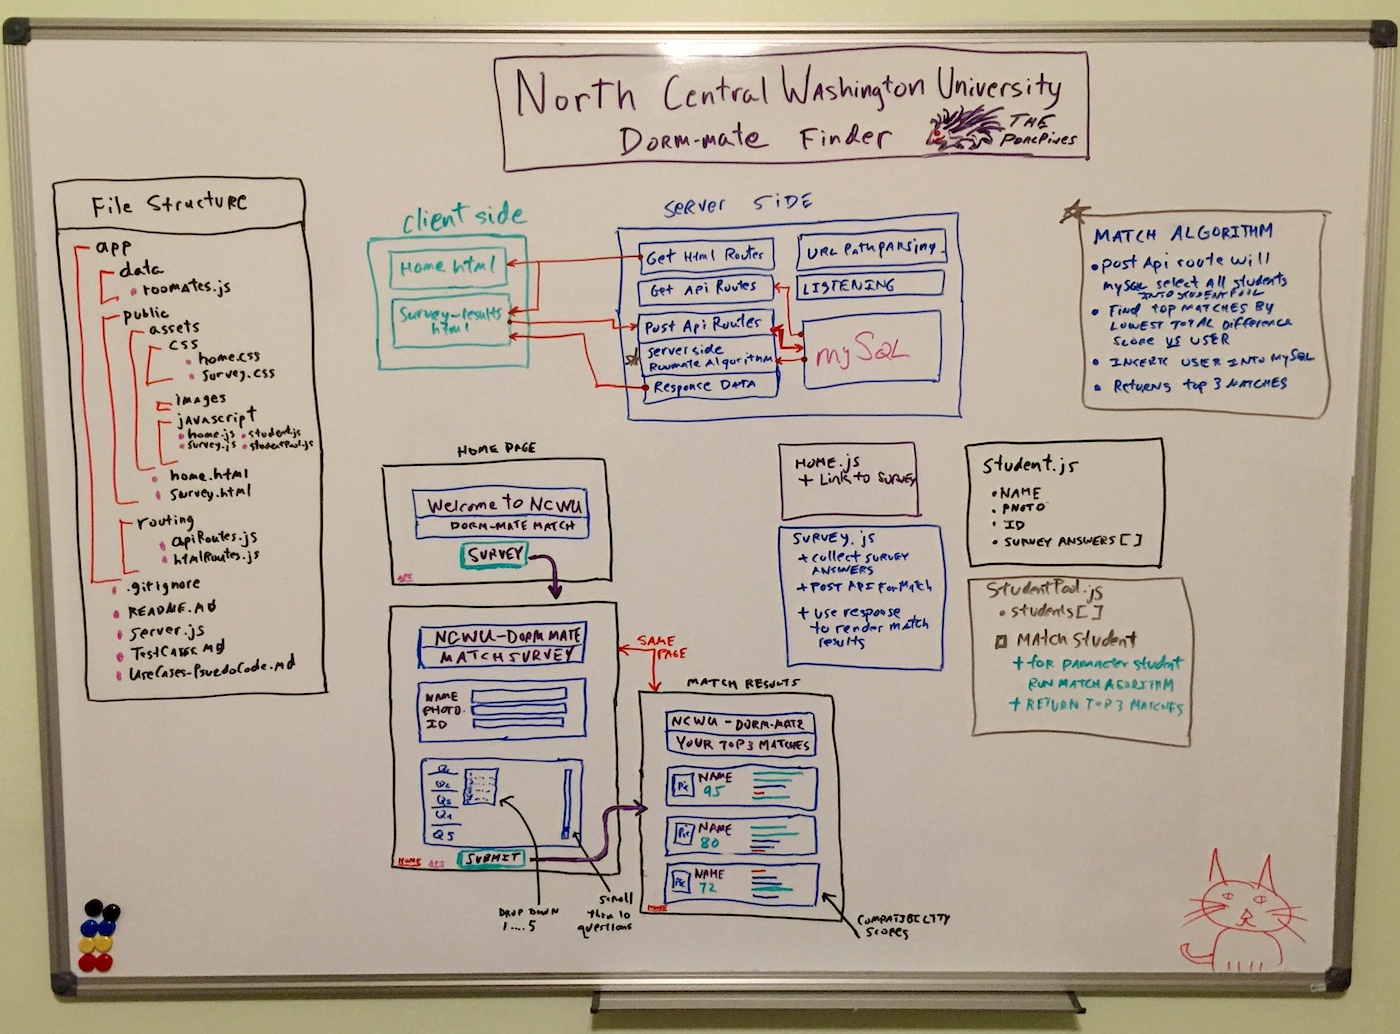 North Central Washington University
Dorm-mate Finder
THE
PORCPINES
File Structure
app
data
roomates.js
public
assets
css
home.css
survey.css
images
javascript
home.js student.js
survey.js studentPool.js
home.html
survey.html
routing
apiRoutes.js
htmlRoutes.js
.gitignore
README.MD
server.js
TestCases.md
UseCases-PsuedoCode.md
client side
Home html
Survey-results
html
Server SIDE
Get Html Routes
Get Api Routes
Post Api Routes
Server side
Roomate Algorithm
Response DATA
URL PathParsing
LISTENING
mySQL
MATCH ALGORITHM
Post Api route will
mySQL select all students
INTO STUDENT POOL
Find TOP MATCHES BY
LOWEST TOTAL DIFFERENCE
SCORE VS USER
INSERT USER INTO MySQL
Returns top 3 MATCHES
HOME PAGE
Welcome to NCWU
DORM-MATE MATCH
SURVEY
API
NCWU-DORM MATE
MATCH SURVEY
NAME
PHOTO
ID
Q1
Q2
Q3
Q4
Q5
HOME API SUBMIT
DROP DOWN
1....5
scroll
thru 10
questions
SAME
PAGE
MATCH RESULTS
NCWU - DORM-MATE
YOUR TOP 3 MATCHES
Pic NAME
95
Pic NAME
80
Pic NAME
72
HOME
COMPATIBILITY
SCORES
HOME.js
+ Link to SURVEY
SURVEY.js
+ collect SURVEY
ANSWERS
+ POST API For Match
+ use response
to render match
results
Student.js
NAME
PHOTO
ID
SURVEY ANSWERS []
StudentPool.js
students[]
MATCH STUDENT
+ for parameter student
RUN MATCH ALGORITHM
+ RETURN TOP 3 MATCHES